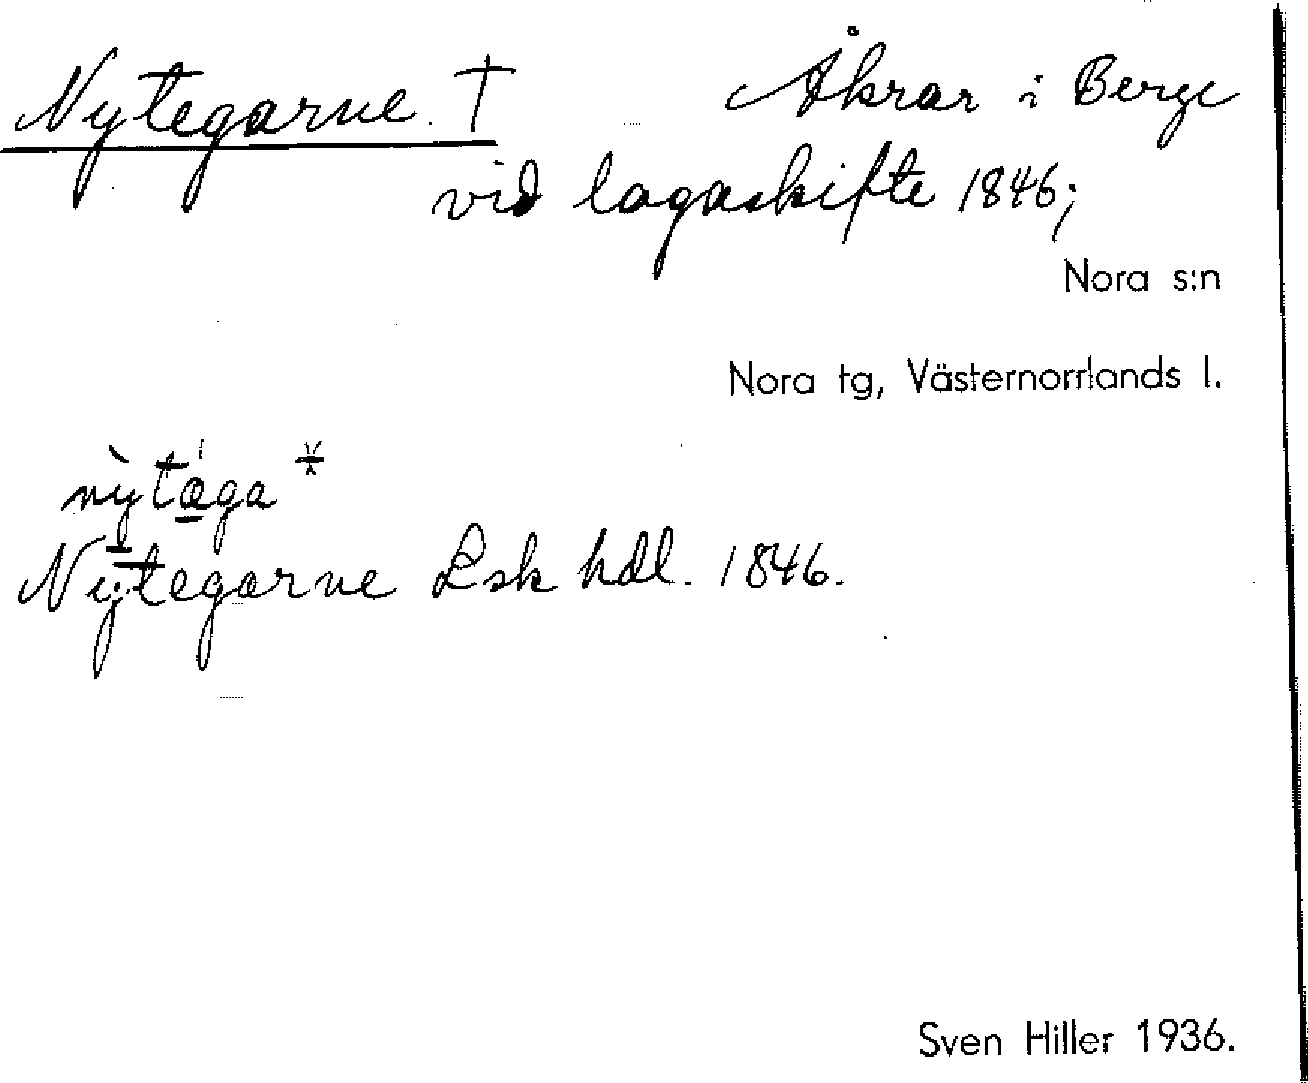 Nytegarne † Åkrar i Berge
vid lagaskifte 1846;
Nora s:n
Nora tg, Västernorrlands l.
nỳtǽ̠ga *
Nytegarne Lsk hdl. 1846.
Sven Hiller 1936.